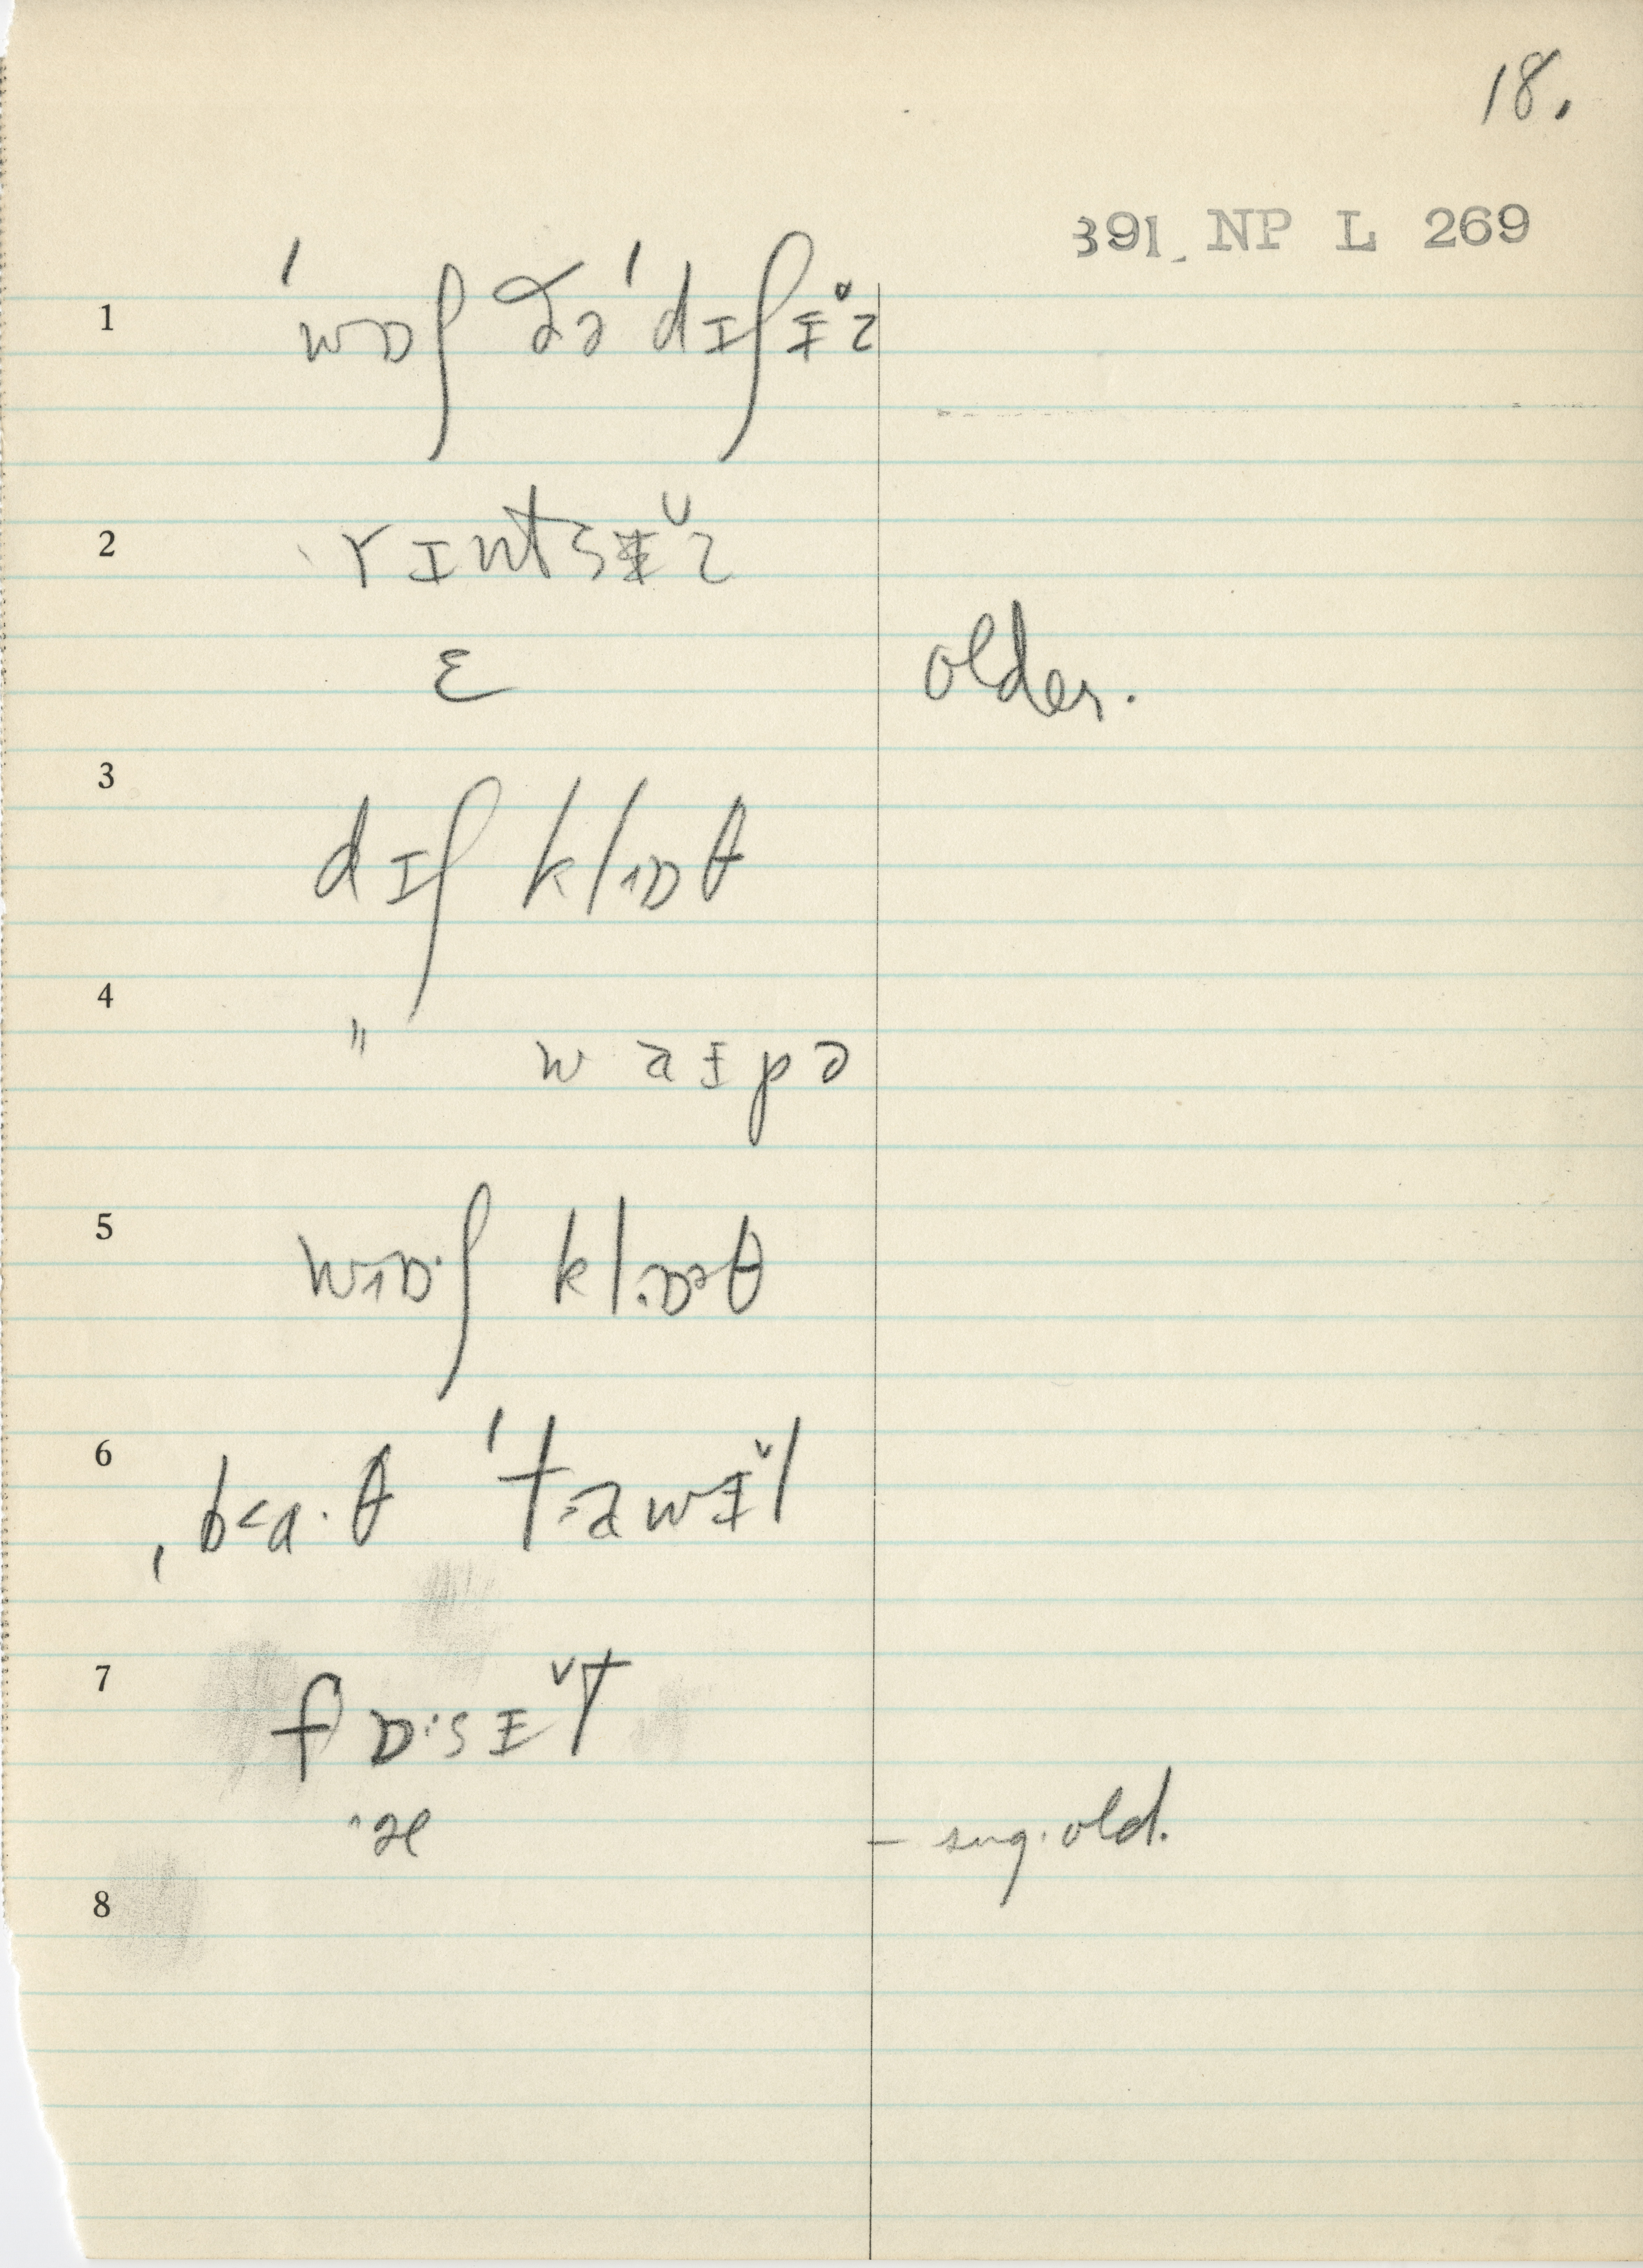 18.
391 NP L 269
1 ˈwɒʃ ðəˈdɪʃɨ̌z
2 rɪntsɨ̌z
ɛ older.
3 dɪʃ klɒθ
4 " waɨpə
5 wɒ·ʃ klɒᵊθ
6 ˌba·θ ˈtawɨ̌l
7 fɒ·sɨ̌t
æ – sug. old.
8